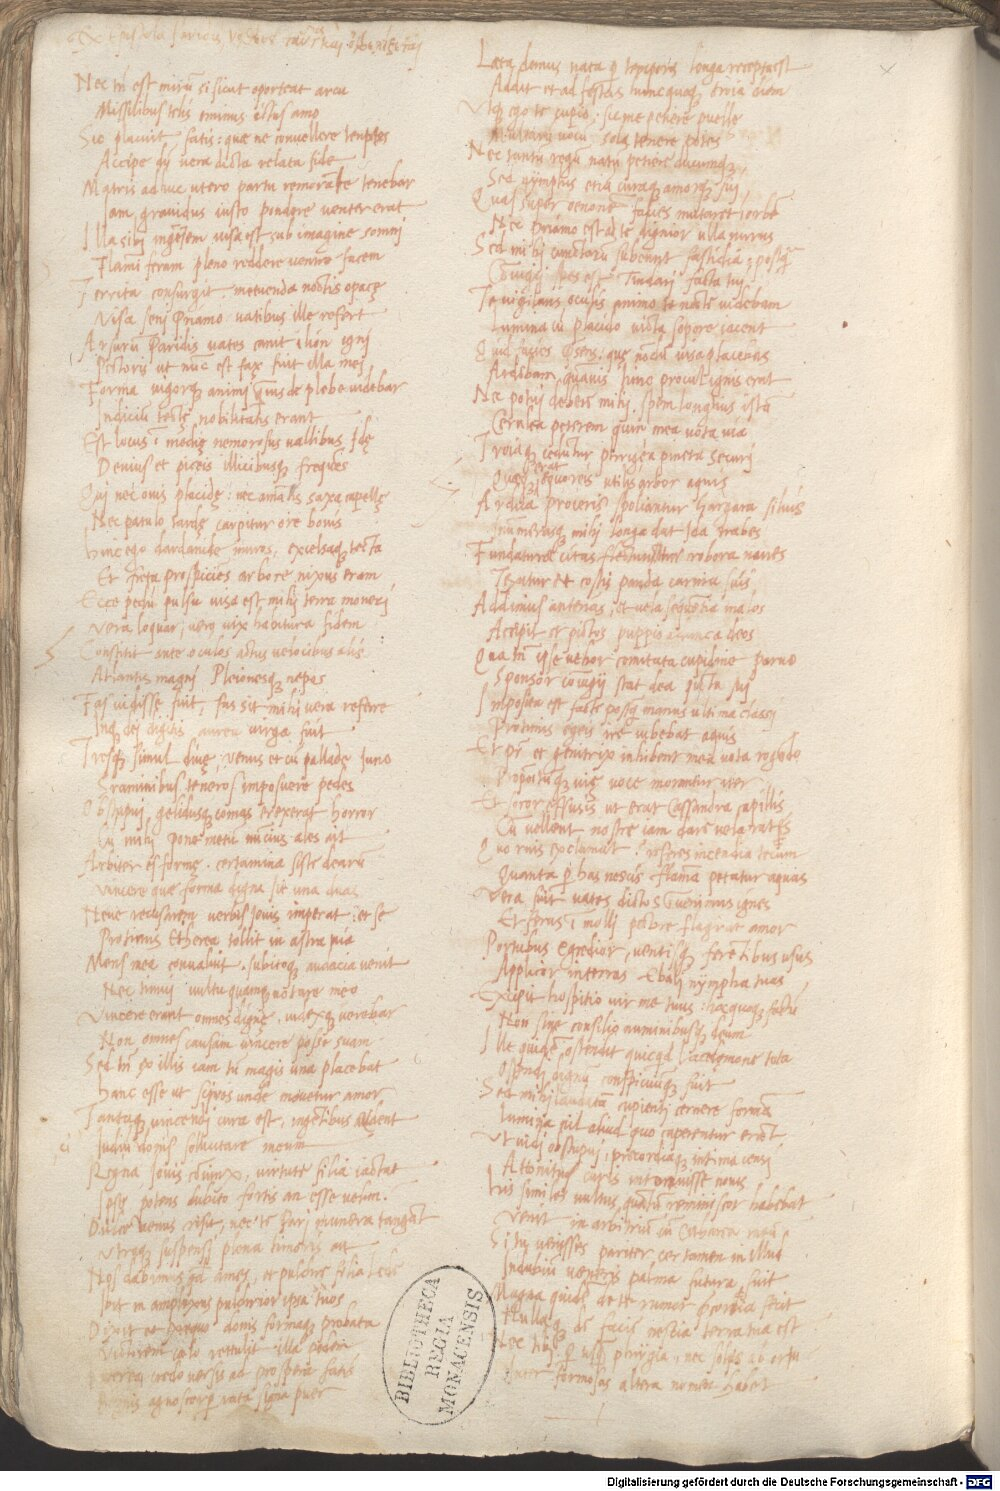 Nec tn est mirũ si sicut oporteat arcu
Missilibus telis eminus ictus amo
Sic placuit fatis: que ne convellere temptes
Accipe  vera dicta relata fide
Matris adhuc utero partu remorante tenebar
Iam gravidus iusto pondere venter erat
Illa sibi ingẽtem visa est sub imagine somni
Flamiferam pleno reddere ventre facem
Territa consurgit: metuenda noctis opacę
Visa seni Priamo: vatibus ille refert
Arsurũ Paridis vates canit ilion igni
Pectoris ut nũc est fax fuit illa mei
Forma vigorq animi  de plebe videbar
Indiciũ tectę nobilitatis erant
Est locus ĩ medię nemorosus vallibus Idę
Devius et piceis illicibusq frequẽs
Qui nec ovis placidę: nec amãtis saxa capellę
Nec patulo tardę carpitur ore bovis
Hinc ego dardanidę muros, excelsaq tecta
Et freta prospiciens arbore nixus eram
Ecce pedũ pulsu visa est mihi terra moveri
Vera loquar, vero vix habitura fidem
Constitit ante oculos actus velocibus alis
Atlantis magni Pleionesq nepos
Fas vidisse fuit, fas sit mihi vera referre
Inq dei digitis aurea virga fuit
Tresq simul divę, venus et cũ pallade Iuno
Graminibus teneros imposuere pedes
Obstupui, gelidusq comas erexerat horror
Cũ mihi pone metũ nũcius ales ait
Arbiter es formę. certamina siste dearũ
Vincere que forma digna sit una duas
Neve recusarem verbis Iovis imperat: et se
Protinus etherea tollit in astra via
Mens mea convaluit. subitoq audacia venit
Nec timui vultu quamq notare meo
Vincere erant omnes dignę, iudexq verebar
Non omnes causam vincere posse suam
Sed tñ ex illis iam tũ magis una placebat
Hanc esse ut scires unde movetur amor
Tantaq vincendi cura est, ingẽtibus ardent
Iudiciũ donis solicitare meum
Regna Iovis cõiunx, virtutẽ filia iactat
Ipse potens dubito fortis an esse velim.
Dulce venus risit, nec te Pari munera tangãt
Utraq suspensi plena timoris ait
Nos dabimus qd ames, et pulchre filia Lede
Ibit in amplexus pulchrior ipsa tuos
Dixit et ex equo donis formaq probata
Victorem cęlo rettulit illa pedem
Interea credo versis ad prospera fatis
Regius agnoscor p rata signa puer
Læta domus nata p tempora longa recepto est
Addit et ad festas hunc quoq troia diem
Utq ego te cupio, sic me petiere puelle
Multarũ votũ sola tenere potes
Nec tantũ regũ natę petiere ducumq,
Sed nymphis etiã curaq, amorq, fui
Quas super oenonę facies mutaret ĩ orbe
Nec Priamo est a te dignior ulla nurus
Sed mihi cunctarũ subeunt fastidia, postq
Cõiugii spes est Tindari facta tui
Te vigilans oculis animo te nocte videbam
Lumina cũ placido victa sopore iacent
Quid facies presens: que nodũ visa placebas
Ardebam, quãvis hinc procul ignis erat
Nec potui debere mihi spem longius istã
Cerulea peterem quin mea vota via
Troiaq cedũtur phrigia pineta securi
Queq erat equoreis utilis arbor aquis
Ardua proceris spoliantur Gargara silvis
Innumerasq mihi longa dat Ida trabes
Fundatura citas flectuntur robora naves
Texitur et costis panda carina suis
Addimus antenas, et vela sequentia malos
Accipit et pictos puppis adunca deos
Qua tñ ipse vehor comitata cupidine parvo
Sponsor cõiugii stat dea picta sui
Imposita est factę postq manus ultima classi
Protinus egeis ire iubebat aquis
Et pr̃ et genitrix inhibent mea vota rogãdo
Propositũq pia voce morantur iter
Et soror effusis ut erat Cassandra capillis
Cũ vellent nostre iam dare vela rates
Quo ruis exclamat? referes incendia tecum
Quanta p has nescis flama petatur aquas
Vera fuit vates dictos invenimus ignes
Et ferus ĩ molli pectore flagrat amor
Portubus egredior, ventisq ferentibus usus
Applicor in terras Ebali nympha tuas
Excipit hospitio vir me tuus: hoc quoq factũ
Non sine consilio numinibusq deum
Ille quidẽ ostendit quicqd lacedemone tota
Ostendi dignũ conspicuũq fuit
Sed mihi laudatã cupienti cernere formã
Lumina nil aliud quo caperentur erãt
Ut vidi obstupui, precordiaq intima sensi
Attonitus curis intumuisse novis
His similes vultus, quãtũ reminiscor habebat
Venit in arbitriũ cũ Citharea meũ
Si tu venisses pariter certamen in illud
In dubiũ veneris palma futura fuit
Magna quidẽ de te rumor preconia fecit
Nullaq de facie nescia terra tua est
Nec tibi p usq phrygia, nec solis ab ortu
Inter formosas altera nomen habet
BIBLIOTHECA
REGIA
MONACENSIS
Digitalisierung gefördert durch die Deutsche Forschungsgemeinschaft - DFG